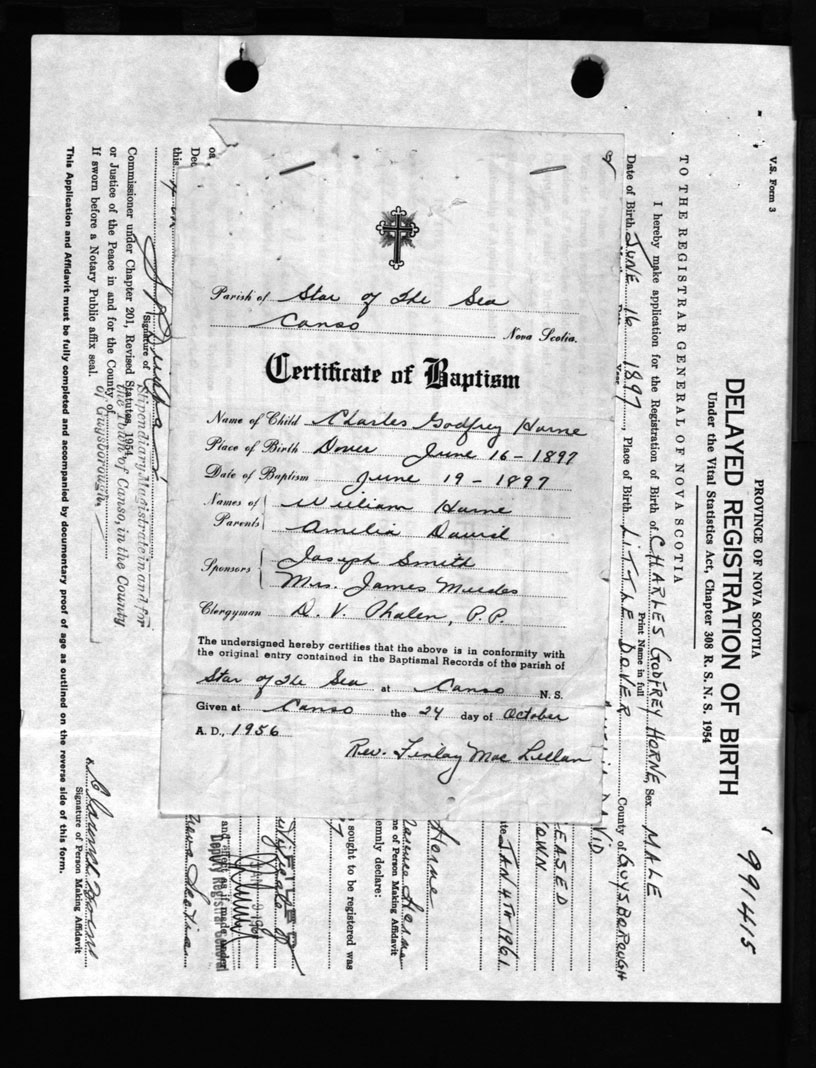 Parish of Star of the Sea
Canso Nova Scotia.
Certificate of Baptism
Name of Child Charles Godfrey Horne
Place of Birth Dover June 16 - 1897
Date of Baptism June 19 - 1897
Names of Parents William Horne
Amelia David
Sponsors Joseph Smith
Mrs. James Meades
Clergyman D. V. Phalen, P.P.
The undersigned hereby certifies that the above is in conformity with
the original entry contained in the Baptismal Records of the parish of
Star of the Sea at Canso N. S.
Given at Canso the 24 day of October
A. D., 1956
Rev. Finlay Mac Lellan
V.S. Form 3
991415
PROVINCE OF NOVA SCOTIA
DELAYED REGISTRATION OF BIRTH
Under the Vital Statistics Act, Chapter 308 R. S. N. S. 1954
TO THE REGISTRAR GENERAL OF NOVA SCOTIA
I hereby make application for the Registration of Birth of CHARLES GODFREY HORNE, Sex MALE
Print Name in full
Date of Birth JUNE 16 1897, Place of Birth LITTLE DOVER County of GUYSBOROUGH
Year
DAVID
EASED
OWN
ate JAN 4TH 1961
Horne
Horne
me of Person Making Affidavit
emnly declare:
sought to be registered was
FILED
and effect as if made under
Deputy Registrar General
Nova Scotia
this
Signature of
Stipendiary Magistrate in and for
the Town of Canso, in the County
of Guysborough
Commissioner under Chapter 201, Revised Statutes, 1954
or Justice of the Peace in and for the County of
If sworn before a Notary Public affix seal.
Signature of Person Making Affidavit
This Application and Affidavit must be fully completed and accompanied by documentary proof of age as outlined on the reverse side of this form.